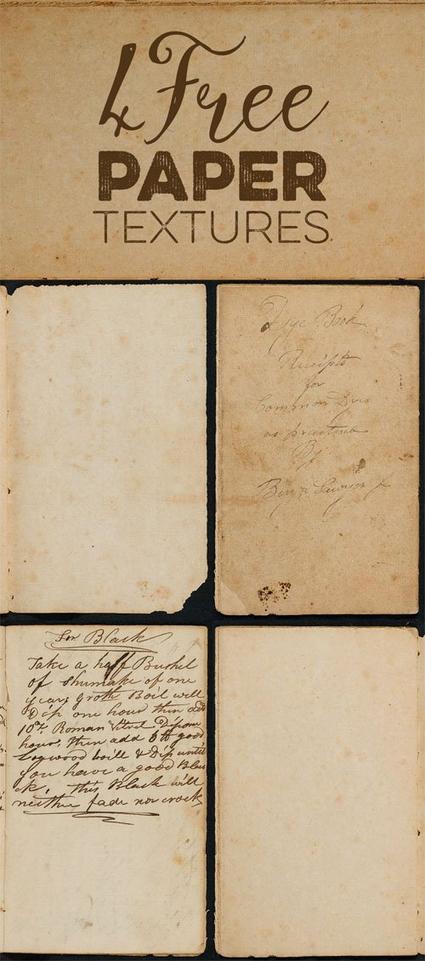 4 Free
PAPER
TEXTURES.
Dye Book
Receipts
for
Common Dyes
as practised
By
For Black
Take a half Bushel
of Shumake of one
years groth Boil will
Dip one hour then add
10 oz Roman Vitrol Dip one
hour, then add 6 lb good
Logwood boill & Dip until
you have a good Blac
ck, this Black will
neither fade nor crock